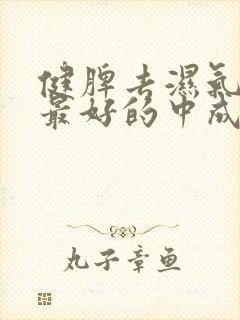 健脾去濕氣
最好的中成
丸子章鱼